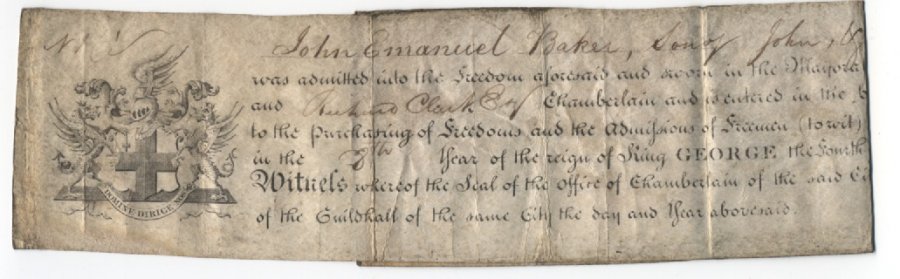 John Emanuel Baker, Son of John,
was admitted into the Freedom aforesaid and sworn in the Mayora
and Richard Clark Esq Chamberlain and is entered in the b
to the purchasing of Freedoms and the Admissions of Freemen (to wit)
in the 8th Year of the reign of King GEORGE the Fourth
Witness whereof the Seal of the office of Chamberlain of the said Ci
of the Guildhall of the same City the day and Year abovesaid.
DOMINE DIRIGE NOS